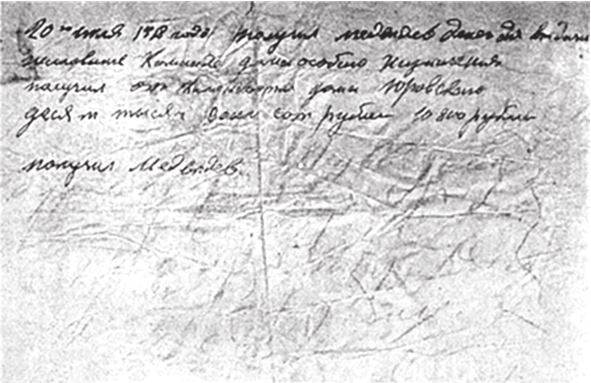 20го июля 1918 года получил медведев денег для выдачи
жалованье Команде дома особаго назначения
получил от Коменданта дома Юровскаго
десят тысяч сот рублей 10 800 рублей
получил Медведев